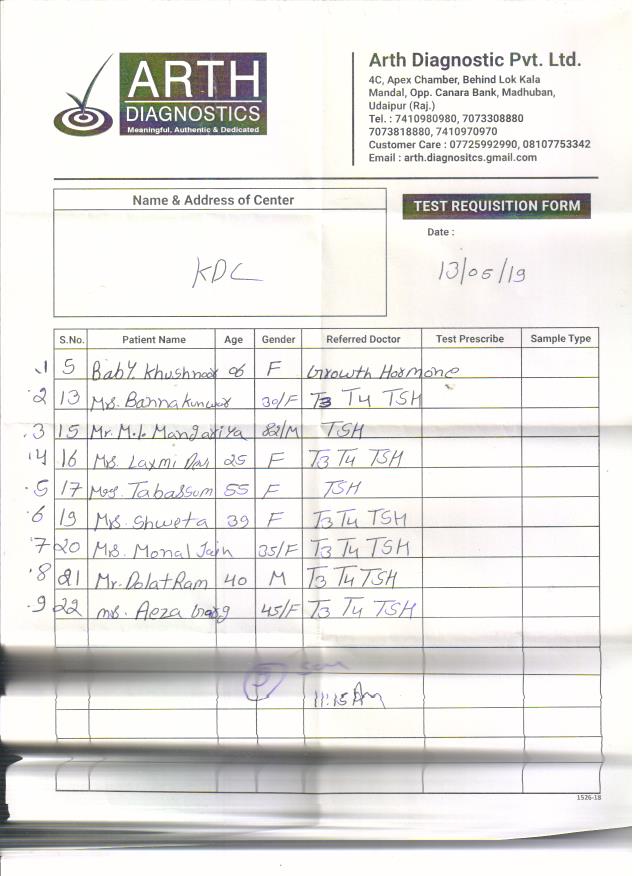 ARTH
DIAGNOSTICS
Meaningful, Authentic & Dedicated
Arth Diagnostic Pvt. Ltd.
4C, Apex Chamber, Behind Lok Kala
Mandal, Opp. Canara Bank, Madhuban,
Udaipur (Raj.)
Tel. : 7410980980, 7073308880
7073818880, 7410970970
Customer Care : 07725992990, 08107753342
Email : arth.diagnositcs.gmail.com
Name & Address of Center
KDC
TEST REQUISITION FORM
Date :
13/05/19
S.No. Patient Name Age Gender Referred Doctor Test Prescribe Sample Type
.1 5 Baby. Khushnoor 06 F Growth Hormone
.2 13 Mrs. Bannakunwar 30/F T3 T4 TSH
.3 15 Mr. M.L. Mangariya 82/M TSH
.4 16 Mrs. Laxmi 25 F T3 T4 TSH
.5 17 Tabassum 55 F TSH
.6 19 Mrs. Shweta 39 F T3 T4 TSH
.7 20 Mrs. Monal Jain 35/F T3 T4 TSH
.8 21 Mr. Dolat Ram 40 M T3 T4 TSH
.9 22 Aeza 45/F T3 T4 TSH
11:15 Am
1526-18